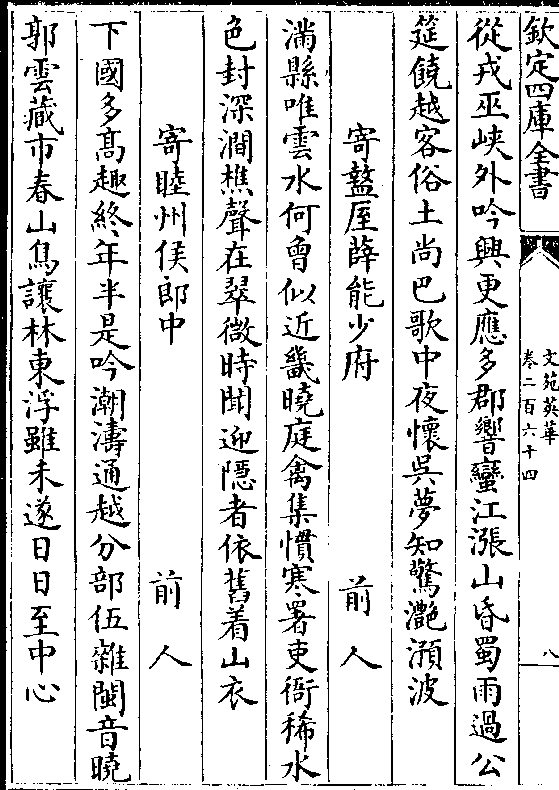 欽定四庫全書
文苑英華
卷二百六十四
八
從戎巫峽外吟興更應多郡響蠻江漲山昏蜀雨過公
筵饒越客俗土尚巴歌中夜懷吳夢知驚灔澦波
寄盩厔薛能少府　前人
滿縣唯雲水何曾似近畿曉庭禽集慣寒署吏衙稀水
色封深澗樵聲在翠微時聞迎隱者依舊着山衣
寄睦州侯郎中　前人
下國多高趣終年半是吟潮濤通越分部伍雜閩音曉
郭雲藏市春山鳥讓林東浮雖未遂日日至中心